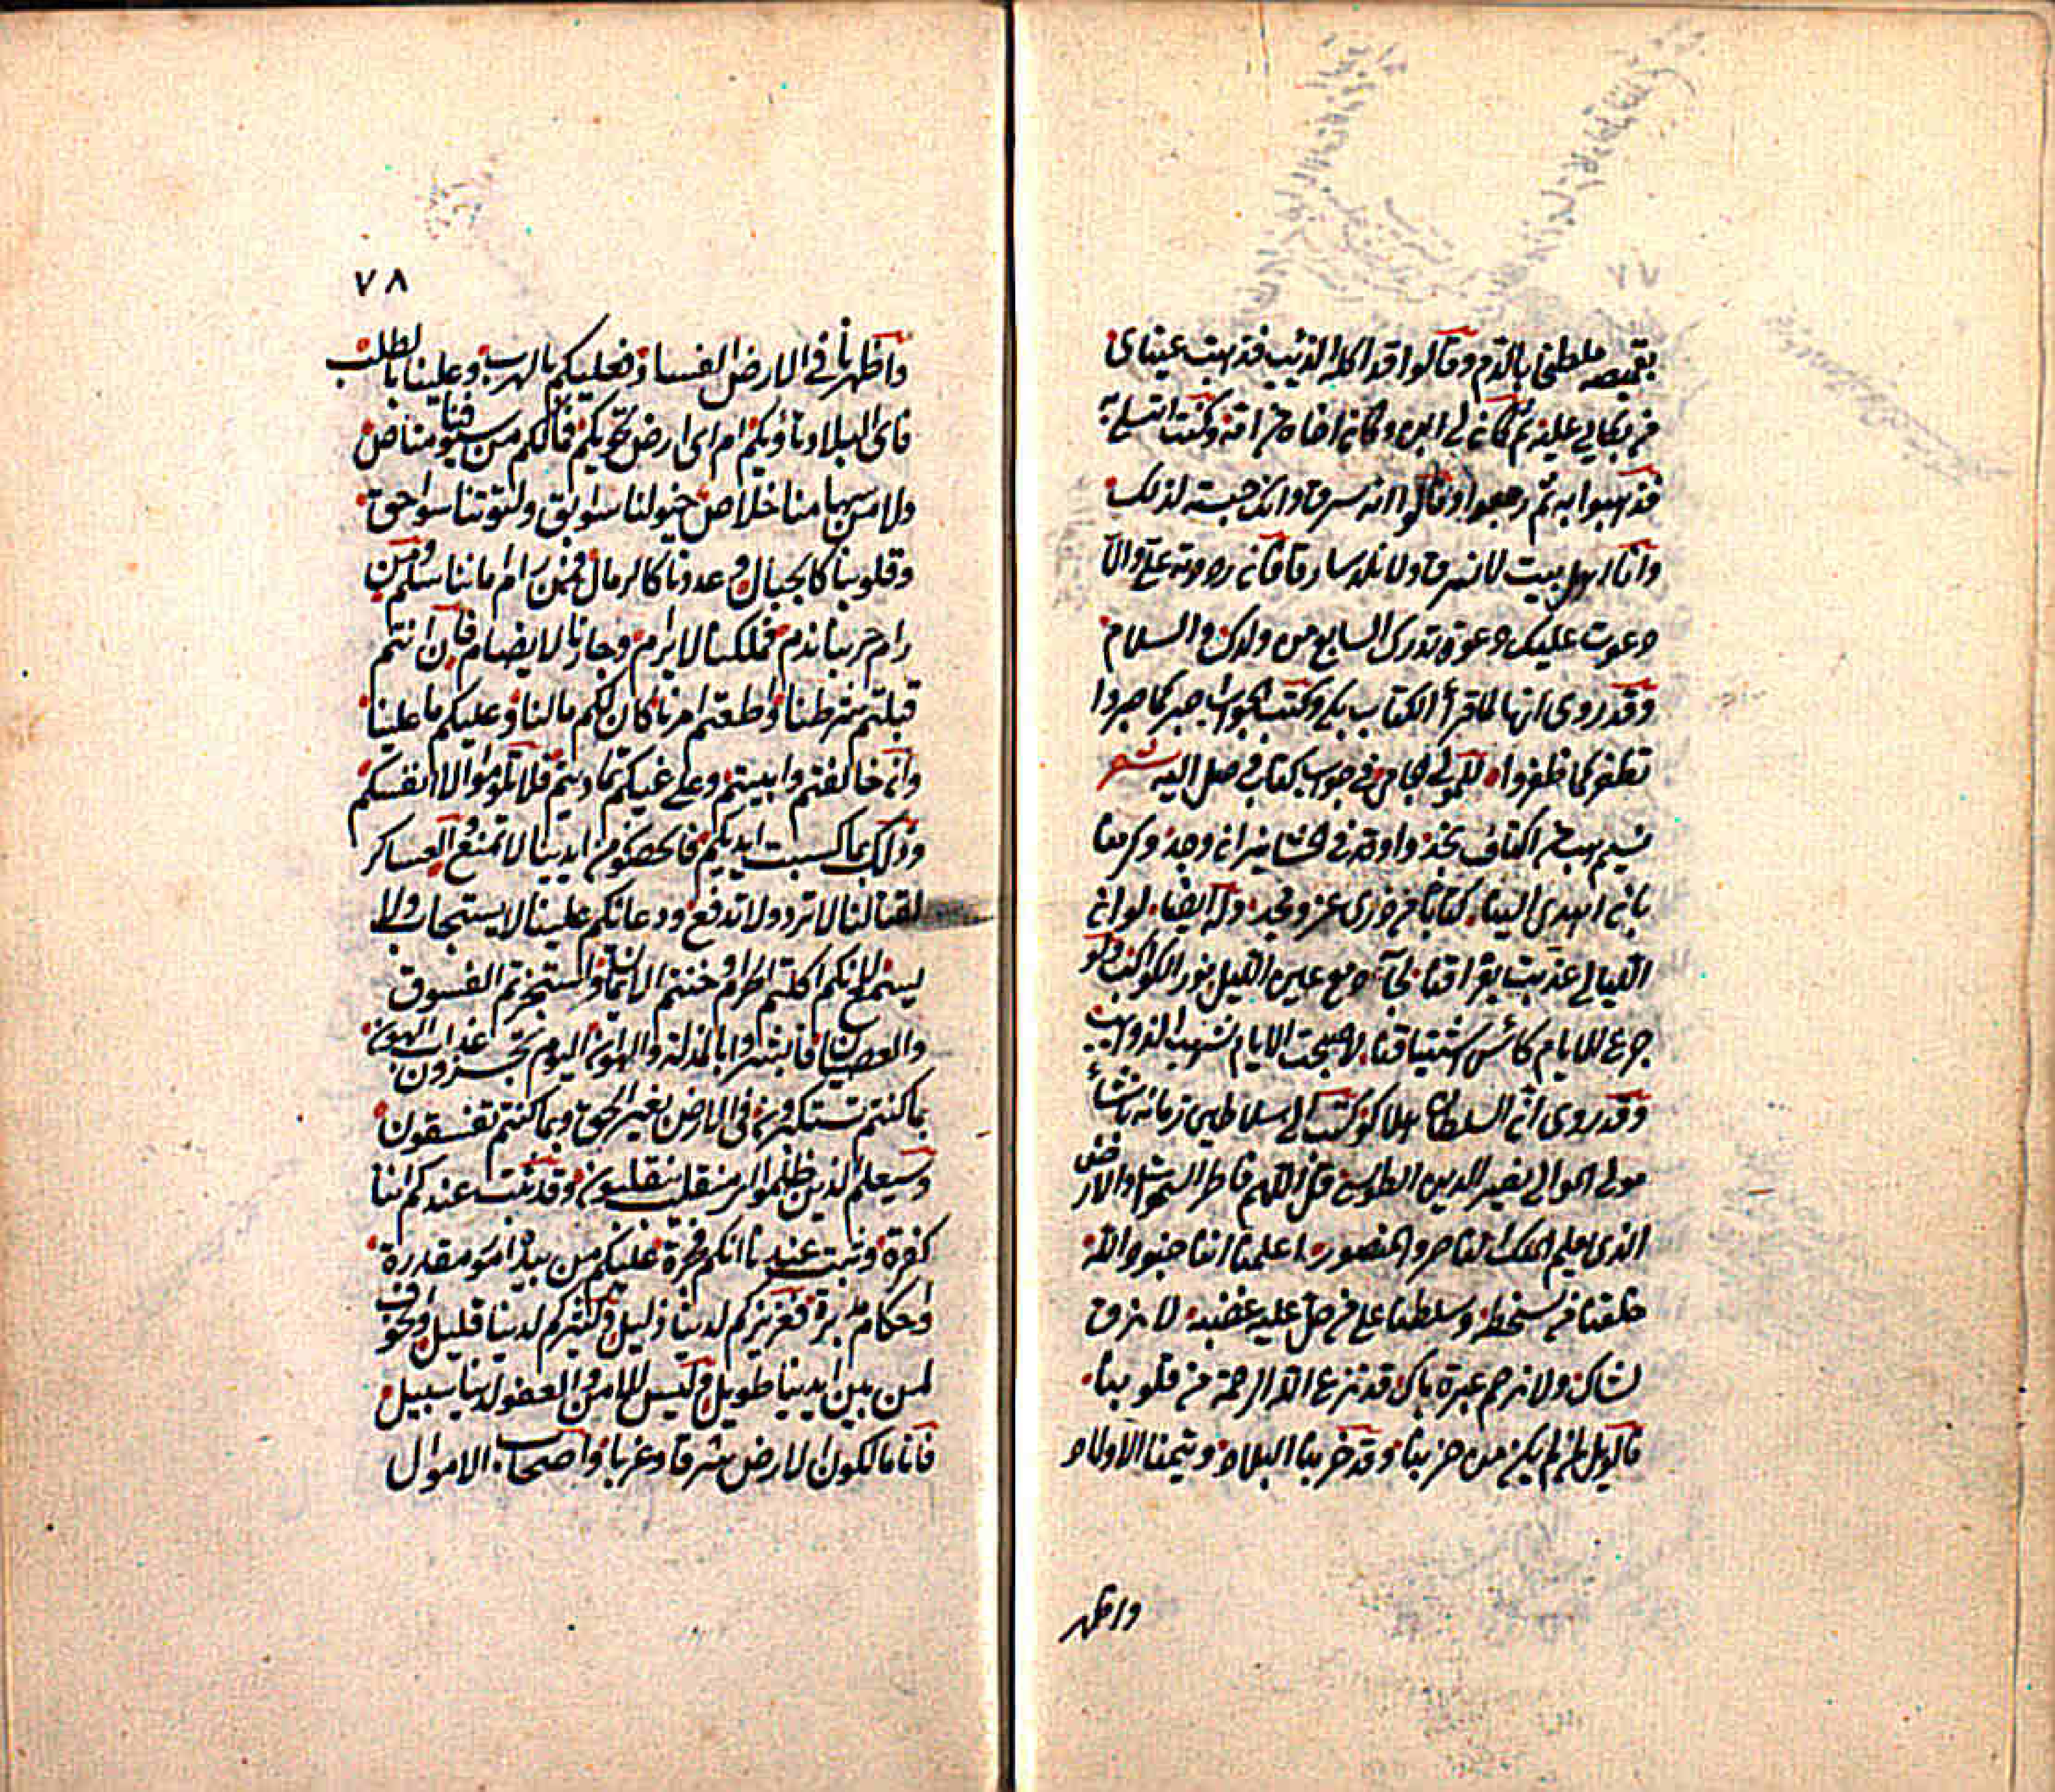 بقميصه ملطخا بالدم وقالوا قد اكله الذئب فذهبت عيناى
من بكائي عليه ثم كان لي ابن وكان اخاه من امه وكنت اتسلى به
فذهبوا به ثم رجعوا وقالوا انه سرق وانك حبسته لذلك
وانا اهل بيت لا نسرق ولا نلد سارقا فان رددته علي والا
دعوت عليك دعوة تدرك السابع من ولدك والسلام
وقد روى انه لما قرأ الكتاب بكى وكتب الجواب اصبر كما صبروا
تظفر كما ظفروا للمولى الجامي في جواب كتاب وصل اليه شعر
نسيم هب من اكناف نجد واوقد في الحشا نيران وجد
بان اهدى الينا كتابا من ذرى عز ومجد وله ايضا لو ان
الليالي عذبت بفراقنا محا دمع عين الليل نور الكواكب ولو
جرع الايام كأس اشتياقنا لاصبحت الايام شهب الذوائب
وقد روى ان السلطان هلاكو كتب الى سلاطين زمانه بانشاء
مولى الموالي نصير الدين الطوسي قل اللهم فاطر السموات والارض
الذى يعلم الملك الناصر والمنصور اعلمنا اننا جنود الله
خلقنا من سخطه وسلطنا على من حل عليه غضبه لا نرق
لشاك ولا نرحم عبرة باك قد نزع الله الرحمة من قلوبنا
فالويل لمن لم يكن من حزبنا وقد خربنا البلاد ويتمنا الاولاد
واظهر
٧٨
واظهرنا في الارض الفساد فعليكم بالهرب وعلينا بالطلب
فاى البلاد تأويكم ام اى ارض تحويكم فما لكم من سيوفنا مناص
ولا من سهامنا خلاص خيولنا سوابق ولتوتنا سواحق
وقلوبنا كالجبال وعددنا كالرمال فمن رام اماننا سلم ومن
رام حربنا ندم فملكنا لا يرام وجارنا لا يضام فان انتم
قبلتم شرطنا واطعتم امرنا كان لكم ما لنا وعليكم ما علينا
وان خالفتم وابيتم وعلى غيكم تماديتم فلا تلوموا الا انفسكم
وذلك بما كسبت ايديكم فالحصون من ايدينا لا تمنع والعساكر
لقتالنا لا ترد ولا تدفع ودعائكم علينا لا يستجاب ولا
يسمع لانكم اكلتم الحرام وخنتم الايمان واستجزتم الفسوق
والعصيان فابشروا بالمذلة والهوان اليوم تجزون عذاب الهون
بما كنتم تستكبرون في الارض بغير الحق وبما كنتم تفسقون
وسيعلم الذين ظلموا اى منقلب ينقلبون وقد ثبت عندكم اننا
كفرة وثبت عندنا انكم فجرة سلطنا عليكم من بيده امور مقدرة
واحكام مدبرة فعزيزكم لدينا ذليل وكثيركم لدينا قليل والخوف
لمن بين ايدينا طويل وليس للامن والعفو لدينا سبيل
فانا مالكون الارض شرقا وغربا واصحاب الاموال